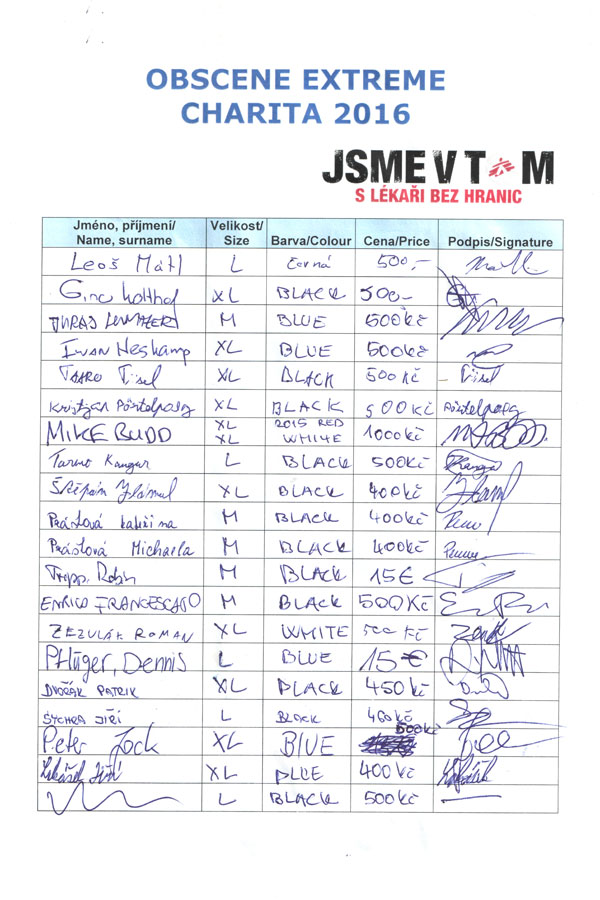 OBSCENE EXTREME
CHARITA 2016
JSME V TOM
S LÉKAŘI BEZ HRANIC
Jméno, příjmení/ Name, surname Velikost/ Size Barva/Colour Cena/Price Podpis/Signature
Leoš Mátl L černá 500,-
XL BLACK 500-
JURAJ M BLUE 500Kč
Iwan Heskamp XL BLUE 500Kč
TAARO Tisel XL BLACK 500Kč Tisel
Kristjan Pöstelpaeg XL BLACK 500Kč Pöstelpaeg
MIKE BUDD XL XL 2015 RED WHITE 1000Kč
Tarmo Kangur L BLACK 500Kč
Štěpán XL BLACK 400Kč
Prášlová Kateřina M BLACK 400Kč
Prášlová Michaela M BLACK 400Kč
Tropp, Robin M BLACK 15€
ENRICO FRANCESCATO M BLACK 500Kč
ZEZULÁK ROMAN XL WHITE 500 Kč
Pflüger, Dennis L BLUE 15€
DVOŘÁK PATRIK XL BLACK 450Kč
SYCHRA JIŘÍ L BLACK 400Kč
Peter Jock XL BLUE 500Kč
Jiří XL BLUE 400Kč
L BLACK 500Kč